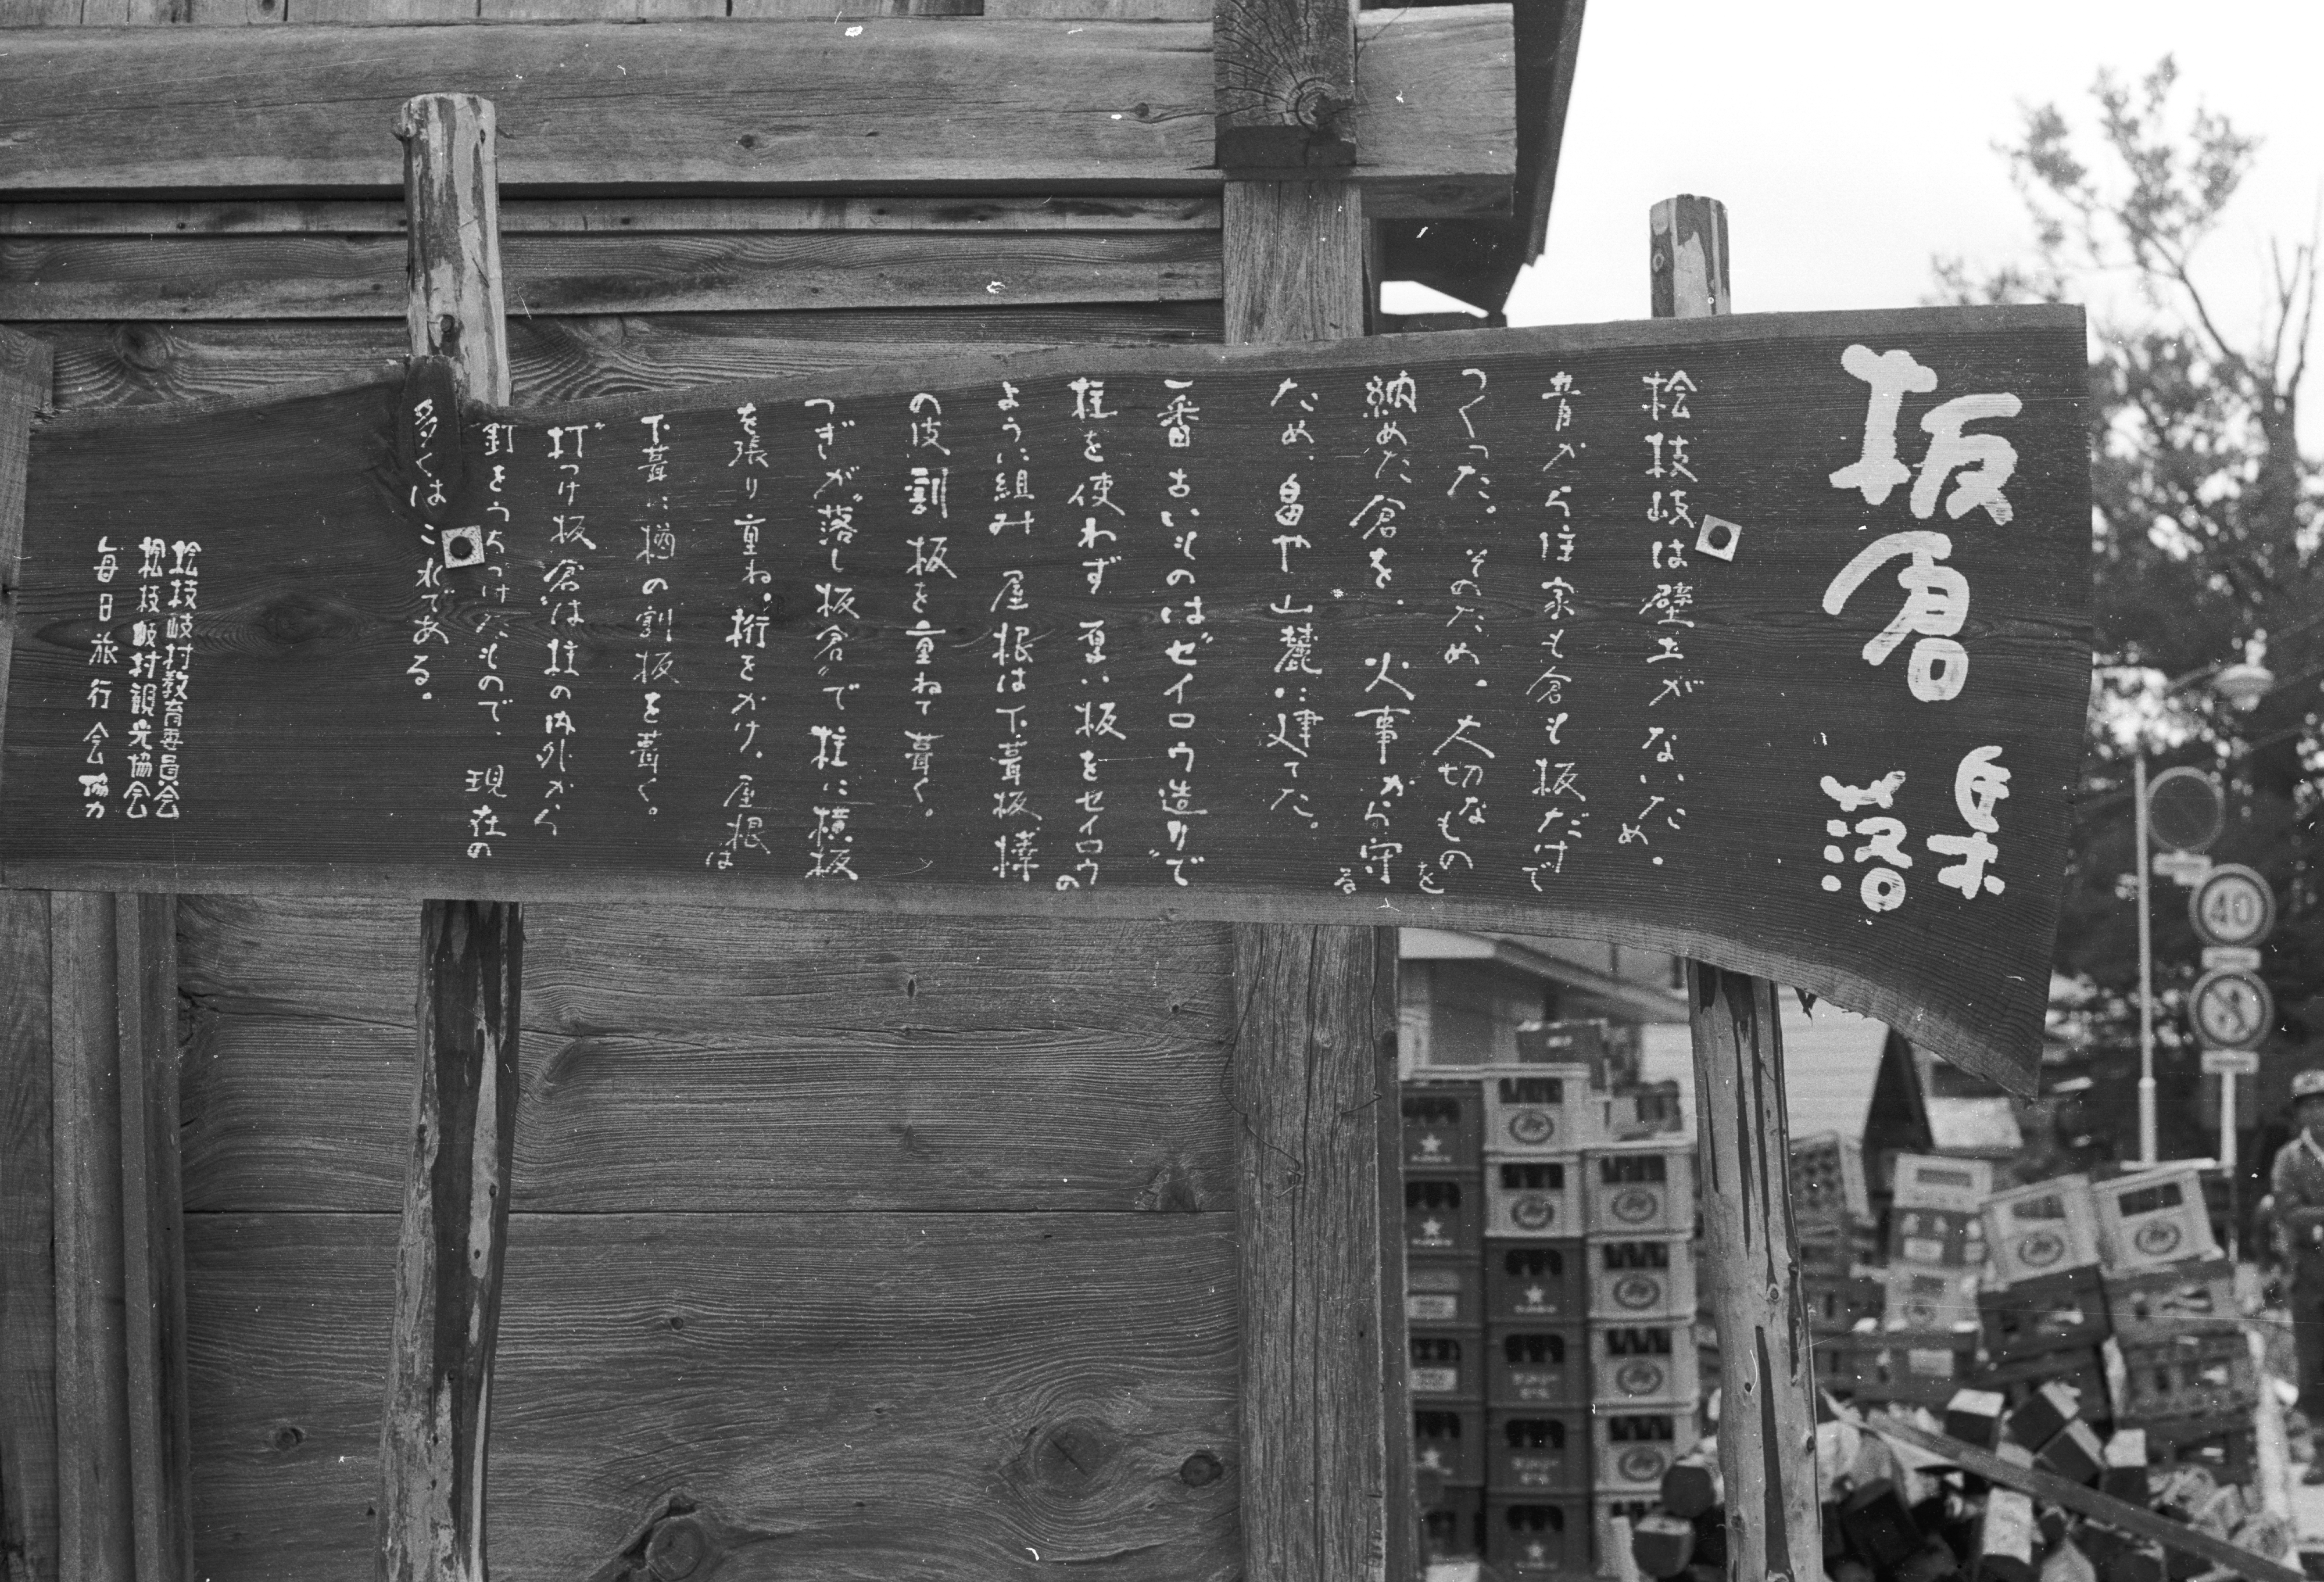 板倉 集落
桧枝岐は壁土がないため、
昔から住家も倉も板だけで
つくった。そのため、大切なものを
納めた倉を、火事から守る
ため、畠や山麓に建てた。
一番古いものはセイロウ造りで
柱を使わず厚い板をセイロウの
ように組み 屋根は下葺板樺
の皮割板を重ねて葺く。
つぎが"落し板倉"で柱に横板
を張り重ね、桁をかけ、屋根は
下葺に楢の割板を葺く。
"打つけ板倉"は柱の内外から
釘をうちつけたもので、現在の
多くはこれである。
桧枝岐村教育委員会
桧枝岐村観光協会
毎日旅行会 協力
40